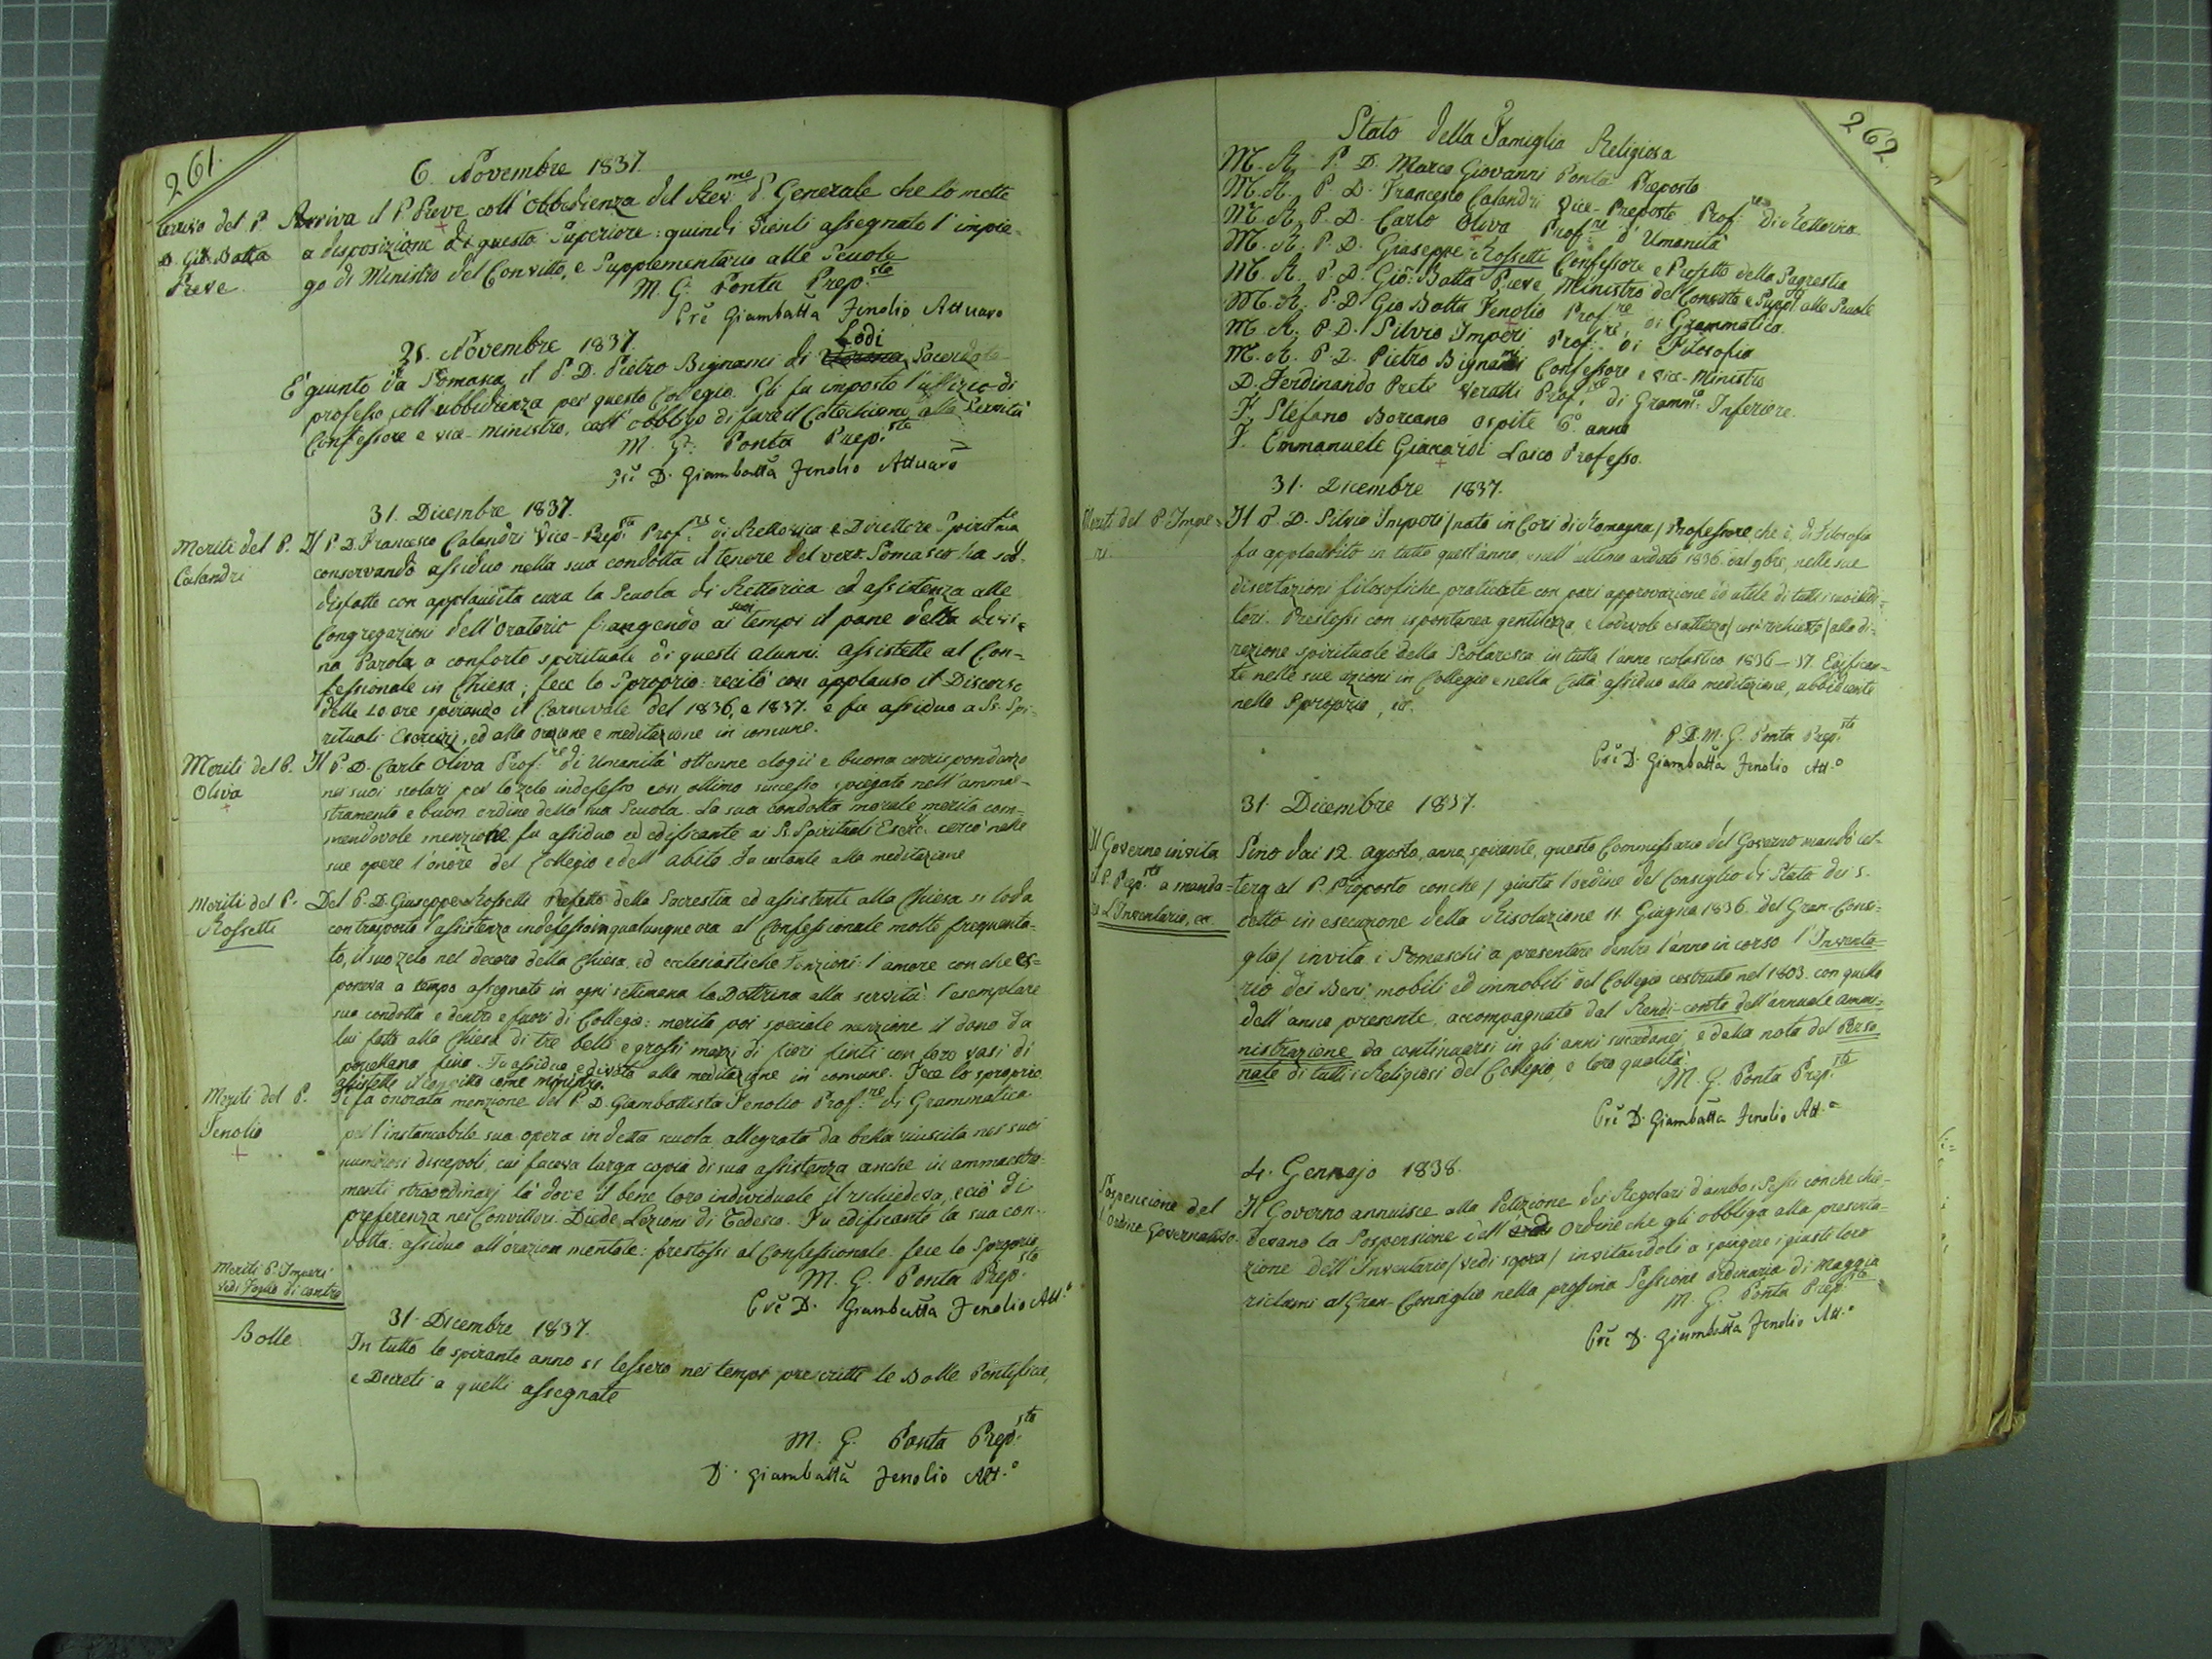 261.
6. Novembre 1837.
Arrivo del P.
D. Gio. Batta
Preve
Arriva il P. Preve coll' Obbedienza del Rev.mo P. Generale che lo mette
a disposizione di questo Superiore: quindi vienli assegnato l'impie-
go di Ministro del Convitto, e Supplementario alle Scuole
M. G. Ponta Prep.sto
Pre Giambatta Fenolio Attuaro
28. Novembre 1837.
Lodi
È giunto da Somasca il P. D. Pietro Bignami di Sacerdote
professo coll' ubbidienza per questo Collegio. Gli fu imposto l'uffizio di
Confessore e vice-ministro, coll' obbligo di fare il Catechismo alla Servitù
M. G. Ponta Prep.sto
Pre D. Giambatta Fenolio Attuaro
31. Dicembre 1837.
Meriti del P.
Calandri
Il P. D. Francesco Calandri Vice-Prep.sto Prof.re di Rettorica e Direttore Spirituale
conservando assiduo nella sua condotta il tenore del vero Somasco ha sod-
disfatto con applaudita cura la Scuola di Rettorica ed assistenza alle
Congregazioni dell'Oratorio frangendo ai suoi tempi il pane della divi-
na Parola a conforto spirituale di questi alunni. Assistette al Con-
fessionale in Chiesa; fece lo Sproprio: recitò con applauso il Discorso
delle 40 ore spirando il Carnevale del 1836, e 1837. e fu assiduo a Ss. Spi-
rituali Esercizj, ed alla orazione e meditazione in comune.
Meriti del P.
Oliva
Il P. D. Carlo Oliva Prof.re di Umanità ottenne elogii e buona corrispondenza
nei suoi scolari per lo zelo indefesso con ottimo successo spiegato nell'ammae-
stramento e buon ordine della sua Scuola. La sua condotta morale merita com-
mendevole menzione fu assiduo ed edificante ai Ss. Spirituali Eserc. cercò nelle
sue opere l'onore del Collegio e dell' abito. Fu costante alla meditazione
Meriti del P.
Rossetti
Del P. D. Giuseppe Rossetti Prefetto della Sacrestia ed assistente alla Chiesa si loda
con trasporto l'assistenza indefessa in qualunque ora al Confessionale molto frequenta-
to, il suo zelo nel decoro della Chiesa, ed ecclesiastiche funzioni: l'amore con che es-
poneva a tempo assegnato in ogni settimana la Dottrina alla servitù: l'esemplare
sua condotta e dentro e fuori di Collegio: merita poi speciale menzione il dono da
lui fatto alla Chiesa di tre belli e grossi mazzi di fiori finti con loro vasi di
porcellana fina. Fu assiduo e divoto alla meditazione in comune. Fece lo sproprio.
assistette il convitto come ministro.
Meriti del P.
Fenolio
Si fa onorata menzione del P. D. Giambattista Fenolio Prof.re di Grammatica
per l'instancabile sua opera in detta scuola allegrata da bella riuscita nei suoi
numerosi discepoli, cui faceva larga copia di sua assistenza anche in ammaestra-
menti straordinarj là dove il bene loro individuale il richiedeva, e ciò di
preferenza nei Convittori. Diede Lezioni di Tedesco. Fu edificante la sua con-
dotta: assiduo all'orazion mentale: prestossi al Confessionale. fece lo Sproprio
M. G. Ponta Prep.sto
Pre D. Giambatta Fenolio Att.o
Meriti P. Imperi
vedi Foglio di contro
31. Dicembre 1837.
Bolle
In tutto lo spirante anno si lessero nei tempi prescritti le Bolle Pontificie,
e Decreti a quelli assegnate
M. G. Ponta Prep.sto
D. Giambatta Fenolio Att.o
262.
Stato della Famiglia Religiosa
M. R. P. D. Marco Giovanni Ponta Preposto
M. R. P. D. Francesco Calandri Vice-Preposto Prof.re di Rettorica
M. R. P. D. Carlo Oliva Prof.re d'Umanità
M. R. P. D. Giuseppe Rossetti Confessore e Prefetto della Sagrestia
M. R. P. D. Gio: Batta Preve Ministro del Convitto e Suppl. alle Scuole
M. R. P. D. Gio Batta Fenolio Prof.re di Grammatica
M. R. P. D. Silvio Imperi Prof.re di Filosofia
M. R. P. D. Pietro Bignami Confessore e Vice-Ministro
D. Ferdinando Prete Veratti Prof.re di Gramm.a Inferiore.
F. Stefano Boreano ospite 6.o anno
F. Emmanuele Giaccardi Laico Professo.
31. Dicembre 1837.
Meriti del P. Impe-
ri.
Il P. D. Silvio Imperi / nato in Cori di Romagna / Professore, che è, di Filosofia
fu applaudito in tutto quest'anno, e nell' ultimo andato 1836. dal 9bre, nelle sue
disertazioni filosofiche praticate con pari approvazione ed utile di tutti i suoi Udi-
tori. Prestossi con ispontanea gentilezza, e lodevole esattezza / così richiesto / alla di-
rezione spirituale della Scolaresca in tutto l'anno scolastico 1836-37. Edifican-
te nelle sue azioni in Collegio e nella Città: assiduo alla meditazione, ubbidiente
nello Sproprio, ec.
P. D. M. G. Ponta Prep.sto
Pre D. Giambatta Fenolio Att.o
31. Dicembre 1837.
Il Governo invita
il P. Prep.sto a manda-
re l'Inventario, ec.
Sino dai 12. agosto, anno spirante, questo Commissario del Governo mandò let-
tera al P. Preposto con che / giusta l'ordine del Consiglio di Stato dei 5.
detto in esecuzione della Risoluzione 11. Giugno 1836. del Gran-Consi-
glio / invita i Somaschi a presentare dentro l'anno in corso l'Inventa-
rio dei Beni mobili ed immobili del Collegio costrutto nel 1803. con quello
dell'anno presente, accompagnato dal Rendi-conto dell'annuale ammi-
nistrazione da continuarsi in gli anni succedanei, e dalla nota del Perso
nale di tutti i Religiosi del Collegio, e loro qualità
M. G. Ponta Prep.sto
Pre D. Giambatta Fenolio Att.o
4. Gennajo 1838.
Sospensione del
l'Ordine Governativo.
Il Governo annuisce alla Petizione dei Regolari d'ambo i Sessi con che chie-
devano la Sospensione dell' Ordine che gli obbliga alla presenta-
zione dell'Inventario / vedi sopra / invitandoli a spingere i giusti loro
riclami al Gran-Consiglio nella prossima Sessione ordinaria di Maggio
M. G. Ponta Prep.sto
Pre D. Giambatta Fenolio Att.o